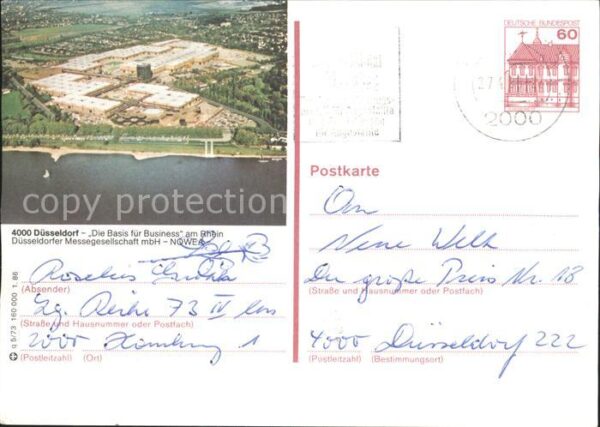 DEUTSCHE BUNDESPOST
60
2000
copy protection
4000 Düsseldorf – „Die Basis für Business“ am Rhein
Düsseldorfer Messegesellschaft mbH – NOWEA
(Absender)
Lg. Reihe 73 IV
(Straße und Hausnummer oder Postfach)
2000 Hamburg 1
(Postleitzahl) (Ort)
q 5/73 160 000 1.86
Postkarte
An
Neue Welt
Der große Preis Nr. 18
(Straße und Hausnummer oder Postfach)
4000 Düsseldorf 222
(Postleitzahl) (Bestimmungsort)